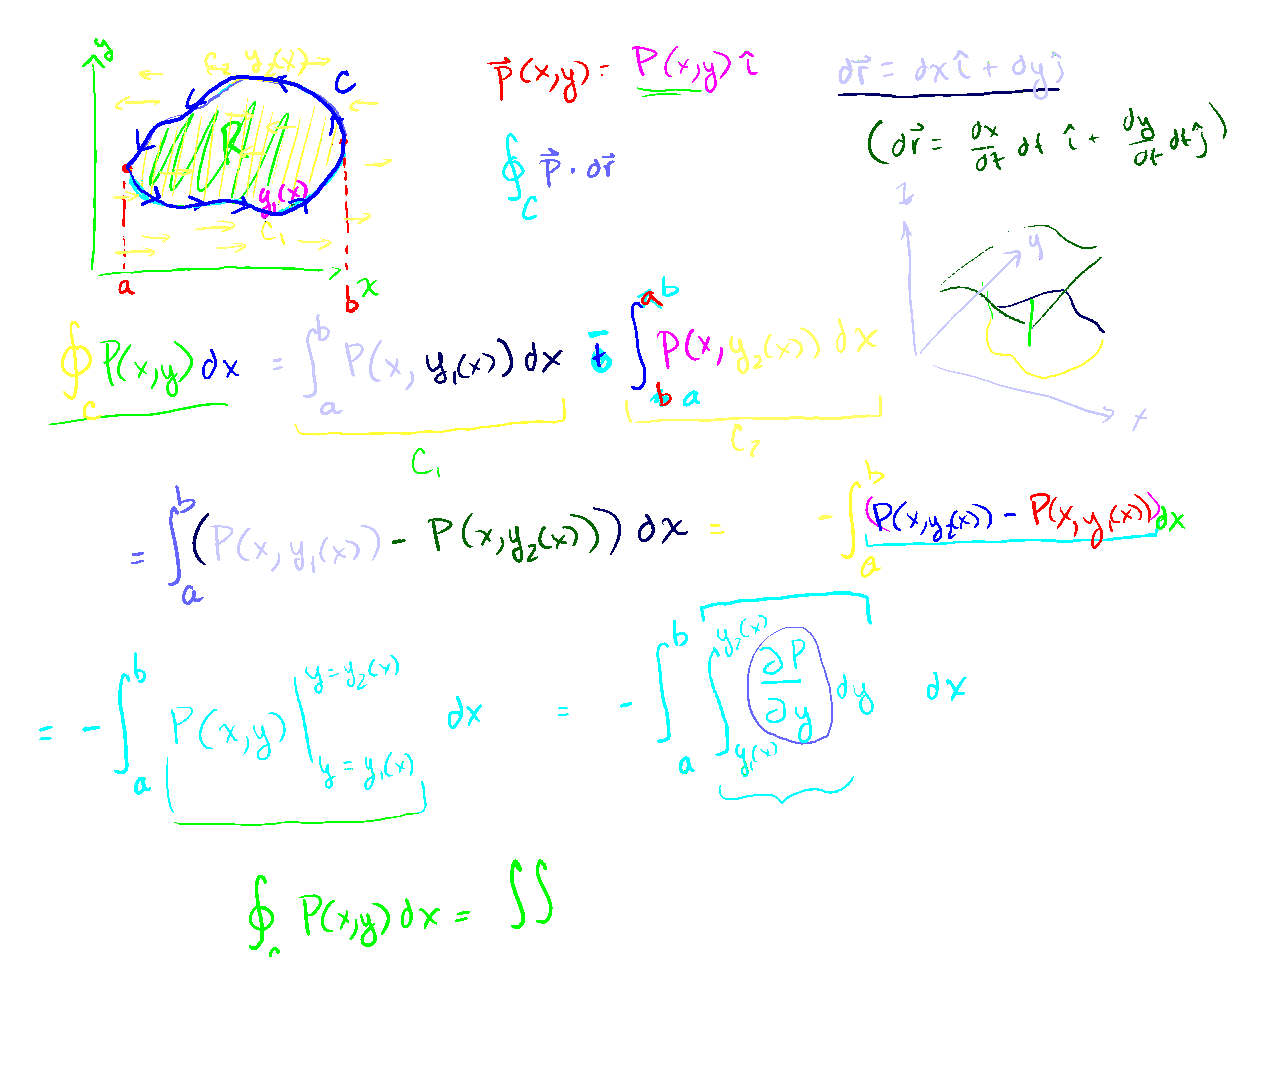 y
C₂ y₂(x)
C
R
y₁(x)
C₁
a
b
x
p⃗(x,y) = P(x,y) î
dr⃗ = dx î + dy ĵ
∮_C p⃗ · dr⃗
(dr⃗ = dx/dt dt î + dy/dt dt ĵ)
z
y
x
∮_C P(x,y) dx = ∫_a^b P(x, y₁(x)) dx + ∫_b^a P(x, y₂(x)) dx
− b a
C₁
C₂
= ∫_a^b (P(x, y₁(x)) − P(x, y₂(x))) dx = − ∫_a^b (P(x, y₂(x)) − P(x, y₁(x))) dx
= − ∫_a^b P(x,y) |_{y = y₁(x)}^{y = y₂(x)} dx = − ∫_a^b ∫_{y₁(x)}^{y₂(x)} ∂P/∂y dy dx
∮_c P(x,y) dx = ∫∫